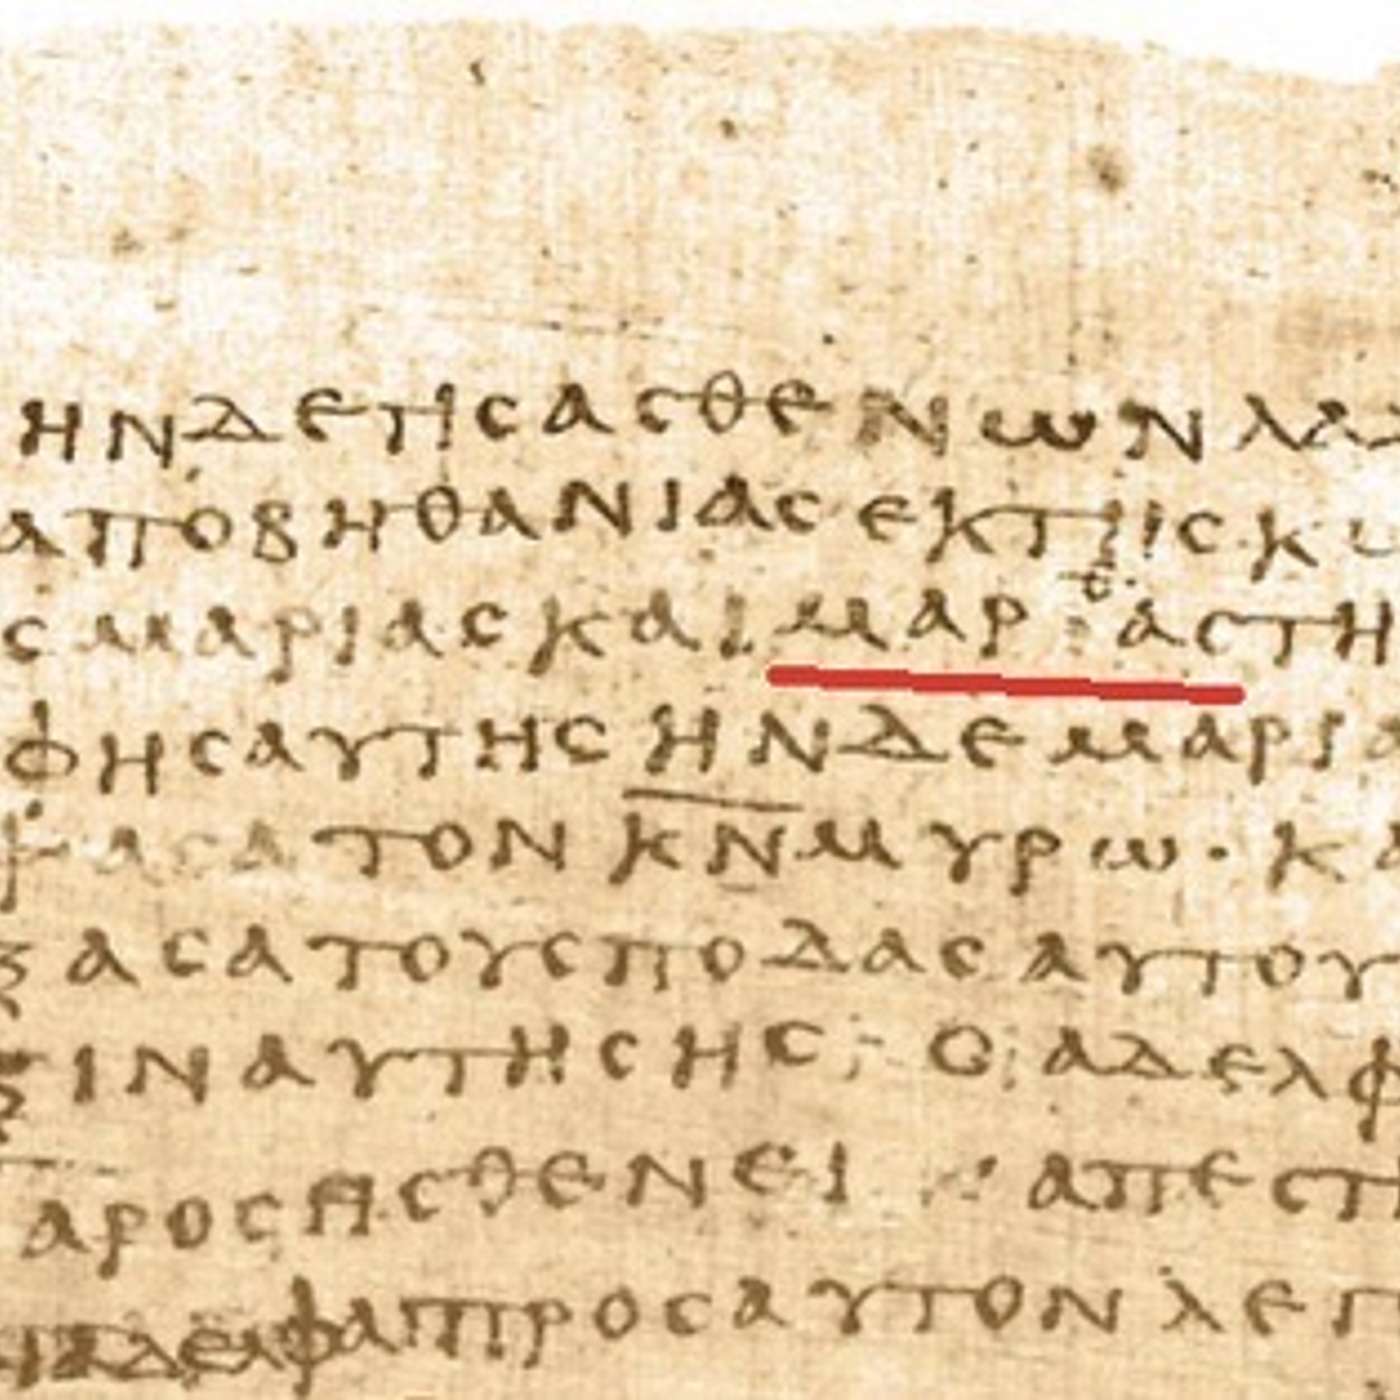 ΗΝΔΕΤΙСΑСΘΕΝΩΝΛΑ
ΑΠΟΒΗΘΑΝΙΑСΕΚΤΗСΚ
СΜΑΡΙΑСΚΑΙΜΑΡΘΑСΤΗ
ΦΗСΑΥΤΗСΗΝΔΕΜΑΡΙΑ
ΨΑСΑΤΟΝΚ̅Ν̅ΜΥΡΩ·ΚΑ
ΞΑСΑΤΟΥСΠΟΔΑСΑΥΤΟΥ
ΞΙΝΑΥΤΗСΗСΟΑΔΕΛΦ
ΑΡΟСΗСΘΕΝΕΙΑΠΕСΤ
ΠΡΟСΑΥΤΟΝΛΕΓ